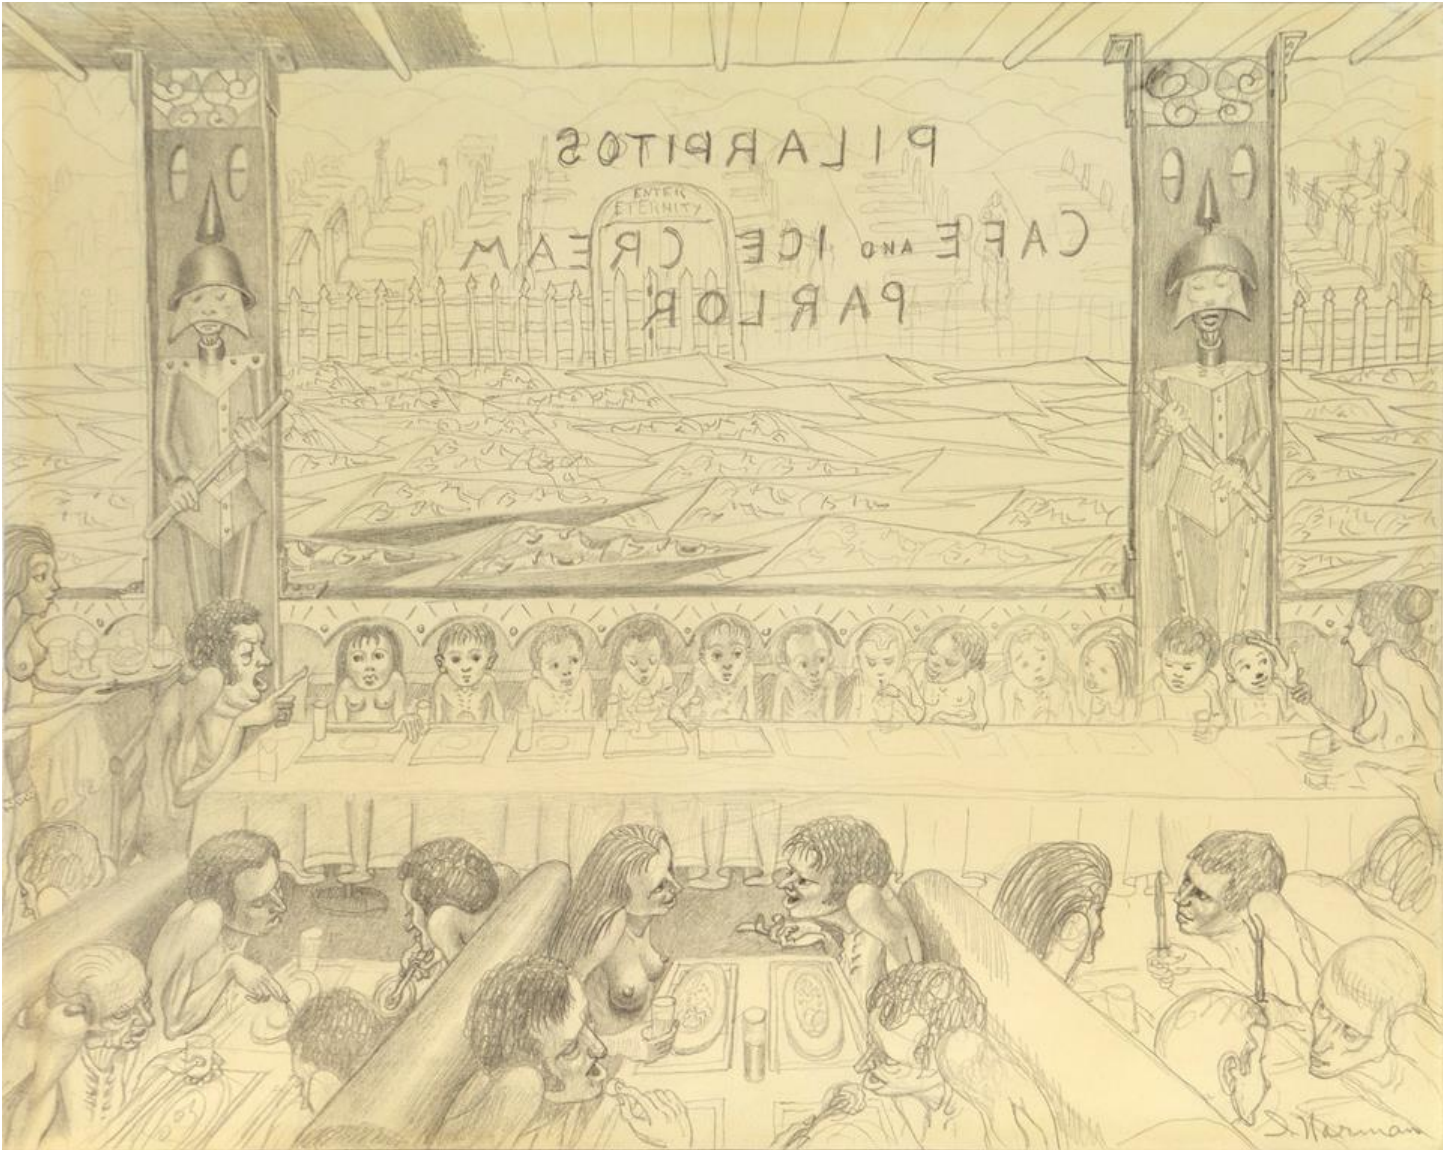 PILARPITOS
ENTER
ETERNITY
CAFE AND ICE CREAM
PARLOR
I. Norman